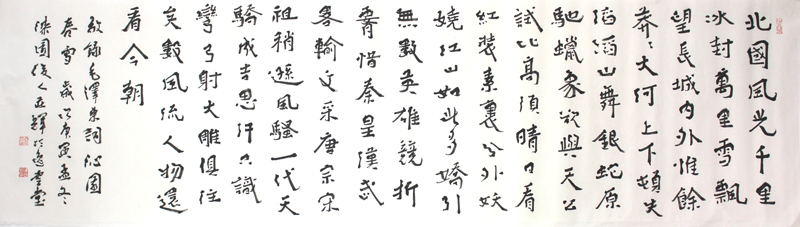 北國風光千里
冰封萬里雪飄
望長城内外惟餘
莽〻大河上下頓失
滔滔山舞銀蛇原
馳蠟象欲與天公
試比高須晴日看
紅裝素裹分外妖
嬈江山如此多嬌引
無數英雄競折
腰惜秦皇漢武
畧輸文采唐宗宋
祖稍遜風騷一代天
驕成吉思汗只識
彎弓射大雕俱往
矣數風流人物還
看今朝
敬錄毛澤東詞沁園
春雪歲次庚寅孟冬
漆園後人亞輝於逸雲堂